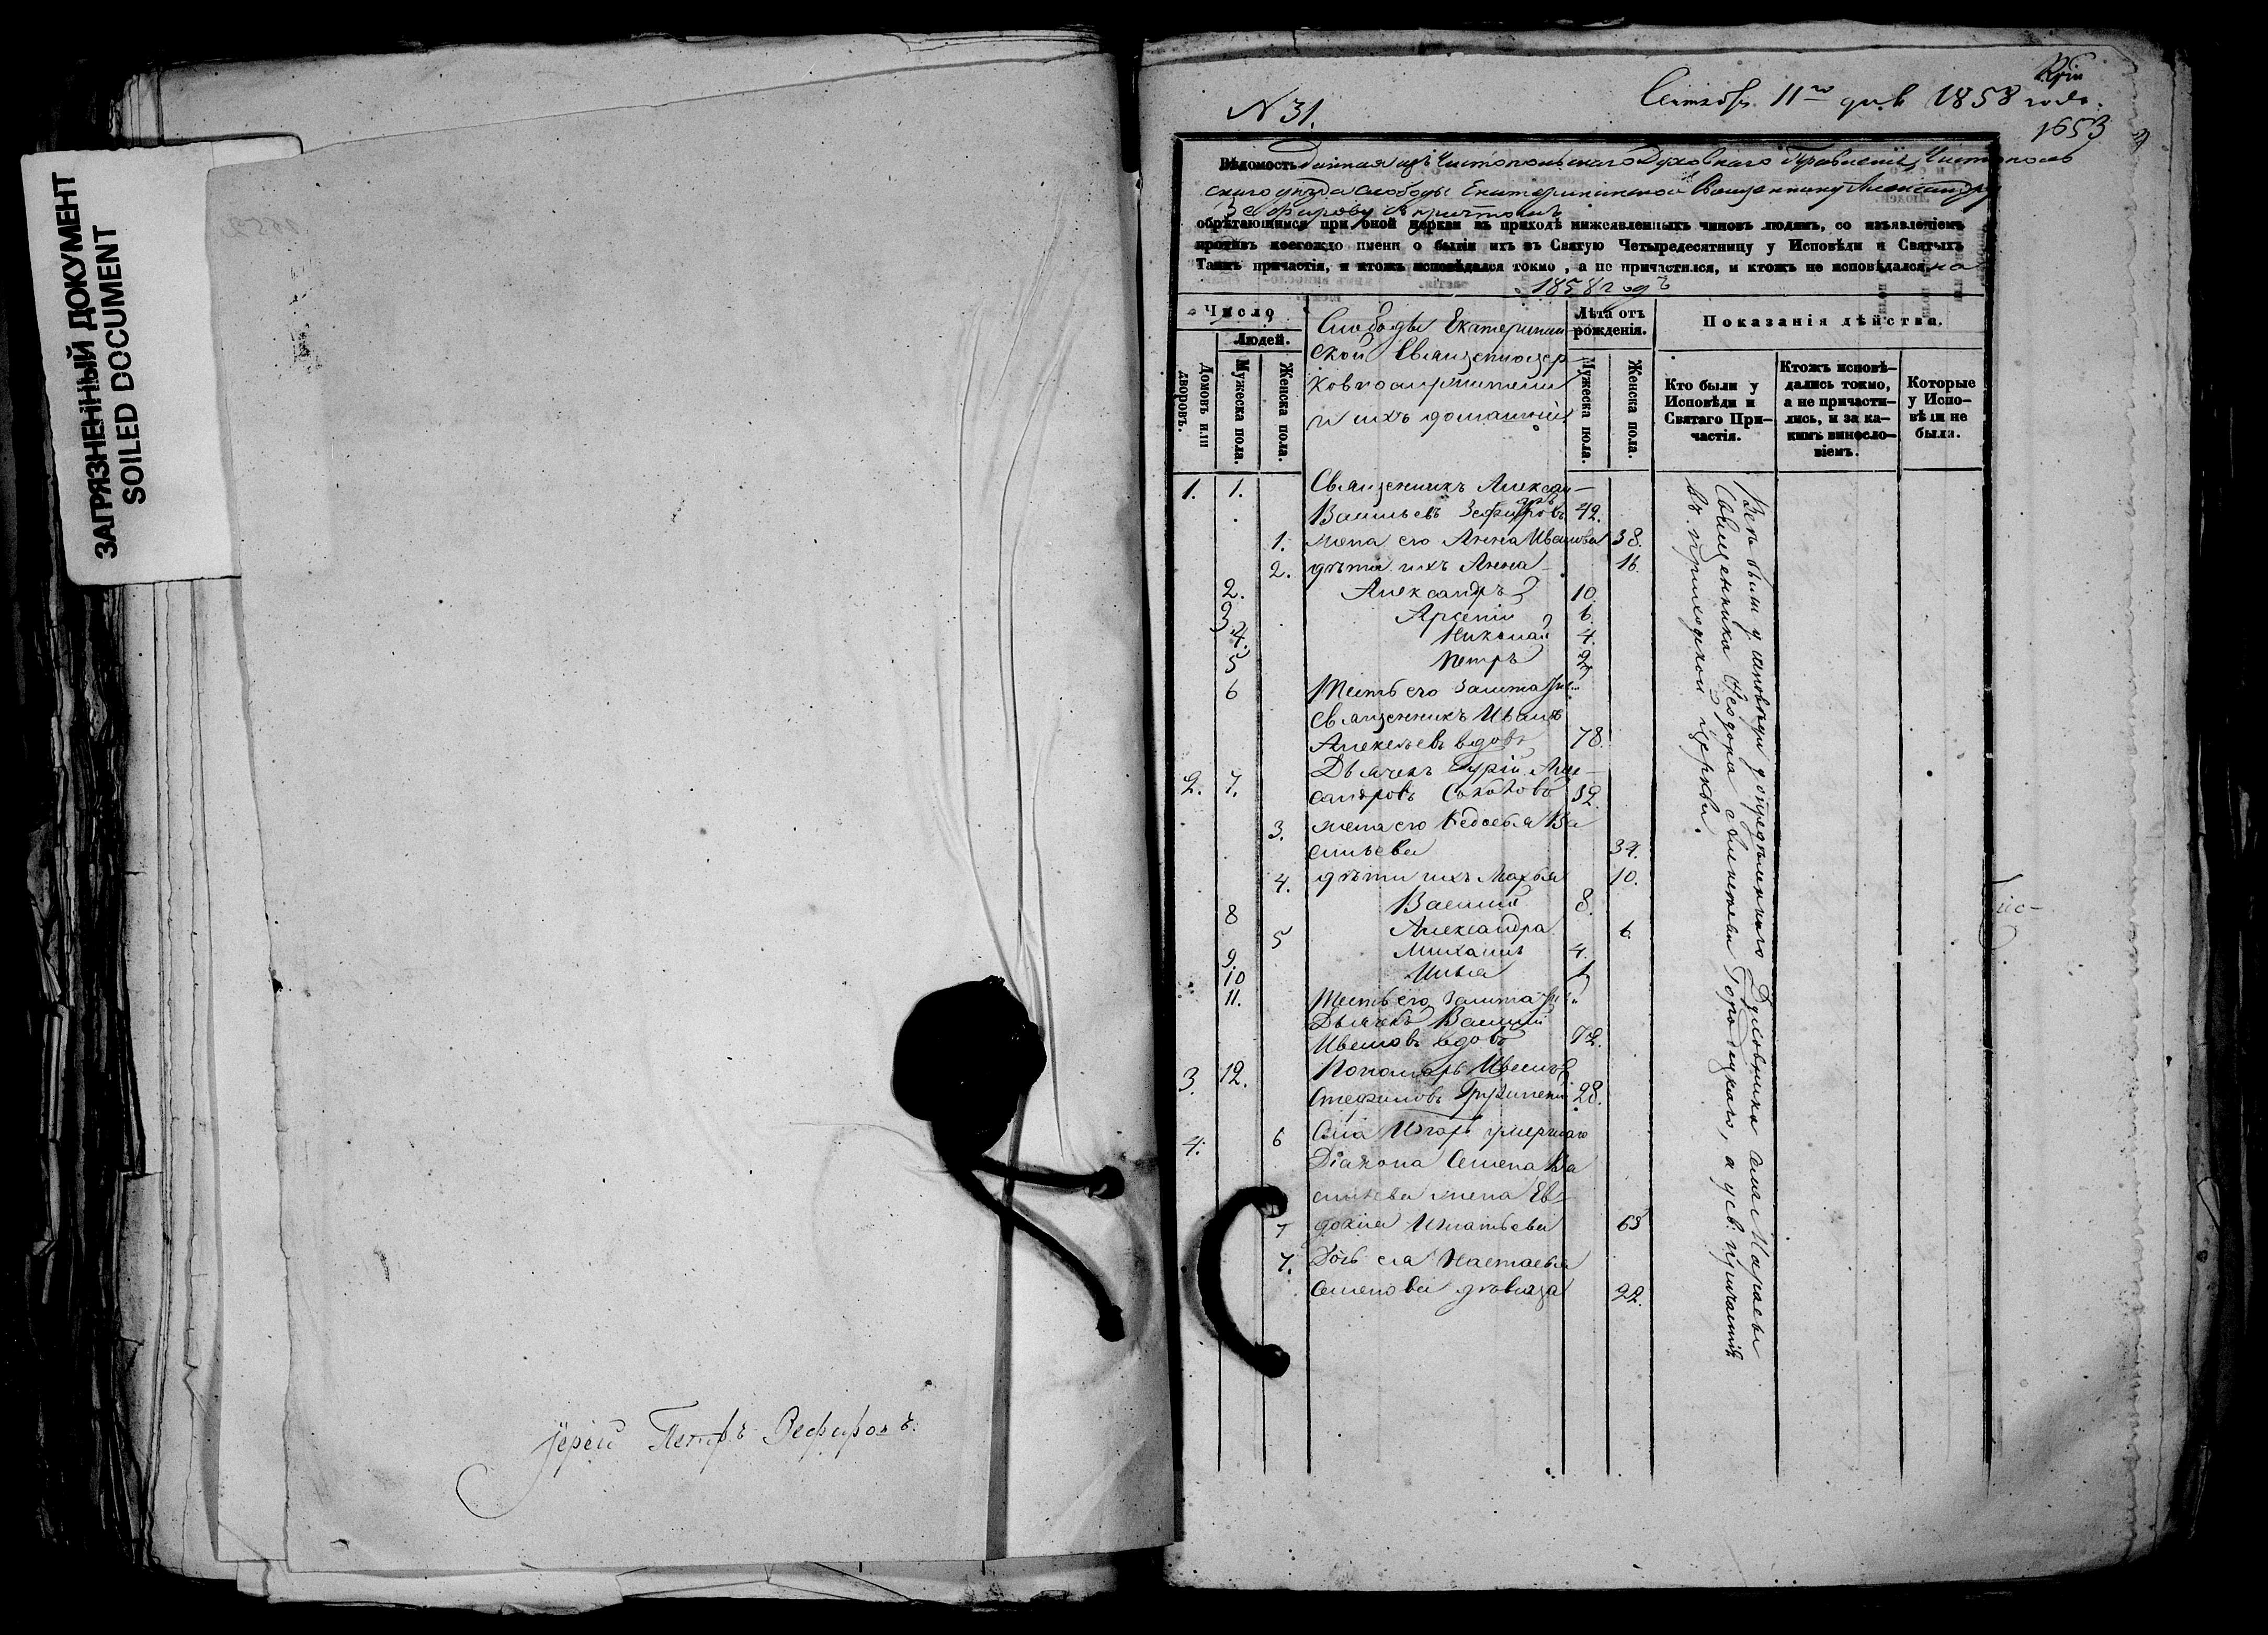 ЗАГРЯЗНЕННЫЙ ДОКУМЕНТ
SOILED DOCUMENT
Іерей Петръ Зефировъ.
N 31.
Сентябр. 11го дня 1858 года.
1653
Вѣдомость данная изъ Чистопольскаго Духовнаго Правленія, Чистополь
скаго уѣзда слободы Екатерининской Священнику Александру
Зефирову съ причтомъ
обрѣтающимся при оной церкви въ приходѣ нижеявленныхъ чиновъ людямъ, со изъявленіемъ
противъ коегождо имени о бытіи ихъ въ Святую Четыредесятницу у Исповѣди и Святыхъ
Таинъ причастія, и ктожъ исповѣдался токмо, а не причастился, и ктожъ не исповѣдался на
1858 годъ
Число
Людей.
Домовъ или дворовъ.
Мужеска пола.
Женска пола.
Слободы Екатеринин
ской Священноцер
ковнослужители
и ихъ домашніе
Лѣта отъ рожденія.
Мужеска пола.
Женска пола.
Показанія дѣйства.
Кто были у Исповѣди и Святаго При- частія.
Ктожъ исповѣ- дались токмо, а не причасти- лись, и за ка- кимъ винosло- віемъ.
Которые у Испо- вѣди не были.
1. 1. Священникъ Алексан-
дръ
Васильевъ Зефировъ 42.
1. жена его Анна Иванова 38.
2. дѣти ихъ Анна 16.
2. Александръ 10.
3. Арсеній 6.
4. Николай 4.
5 Петръ 2
6 Тесть его заштатный
священникъ Иванъ
Алексѣевъ вдовъ 78.
2. 7. Дьячекъ Гурій Алек-
сандровъ Соколовъ 32.
3. жена его Ва
сильева 34.
4. дѣти ихъ Марья 10.
8 Василій 8.
5 Александра 6.
9. Михаилъ 4.
10 Илья 1
11. Тесть его заштатн.
Дьячекъ Василій
Ивановъ вдовъ 72.
3. 12. Пономарь Иванъ
Стефановъ 28.
4. 6 умершаго
Діакона Семена Ва
сильева жена Ев
7 докія Игнатьева 63
7. Дочь ея Настасья
Семенова дѣвица 22.
Всѣ были у исповѣди у опредѣленнаго Духовника села
Священника Феодора Городецкаго, а у св. причастія
въ приходской церкви.